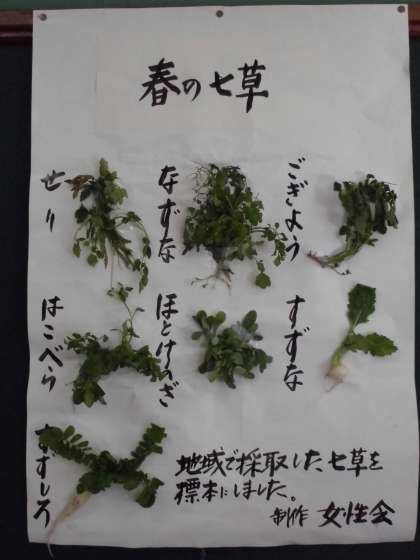 春の七草
せり
なずな
ごぎょう
はこべら
ほとけのざ
すずな
すずしろ
地域で採取した七草を
標本にしました。
制作 女性会